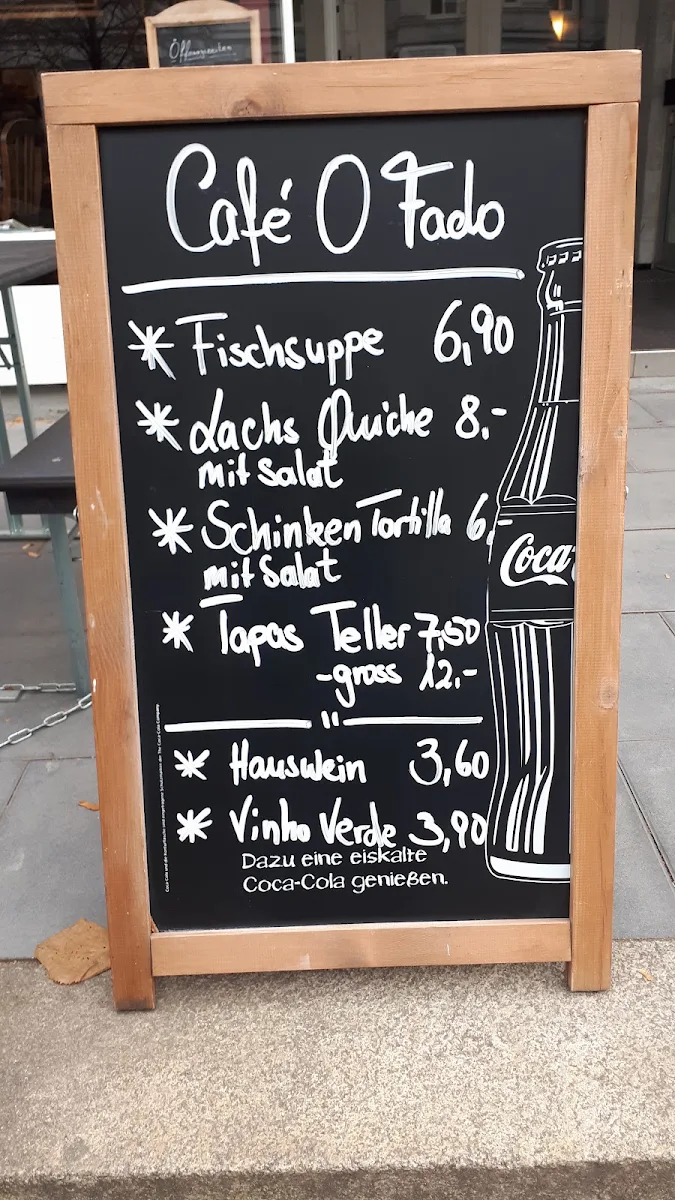 Öffnungszeiten
Café O Fado
* Fischsuppe 6,90
* Lachs Quiche 8,-
mit Salat
* Schinken Tortilla 6,-
mit Salat
* Tapas Teller 7,50
-gross 12,-
* Hauswein 3,60
* Vinho Verde 3,90
Dazu eine eiskalte
Coca-Cola genießen.
Coca